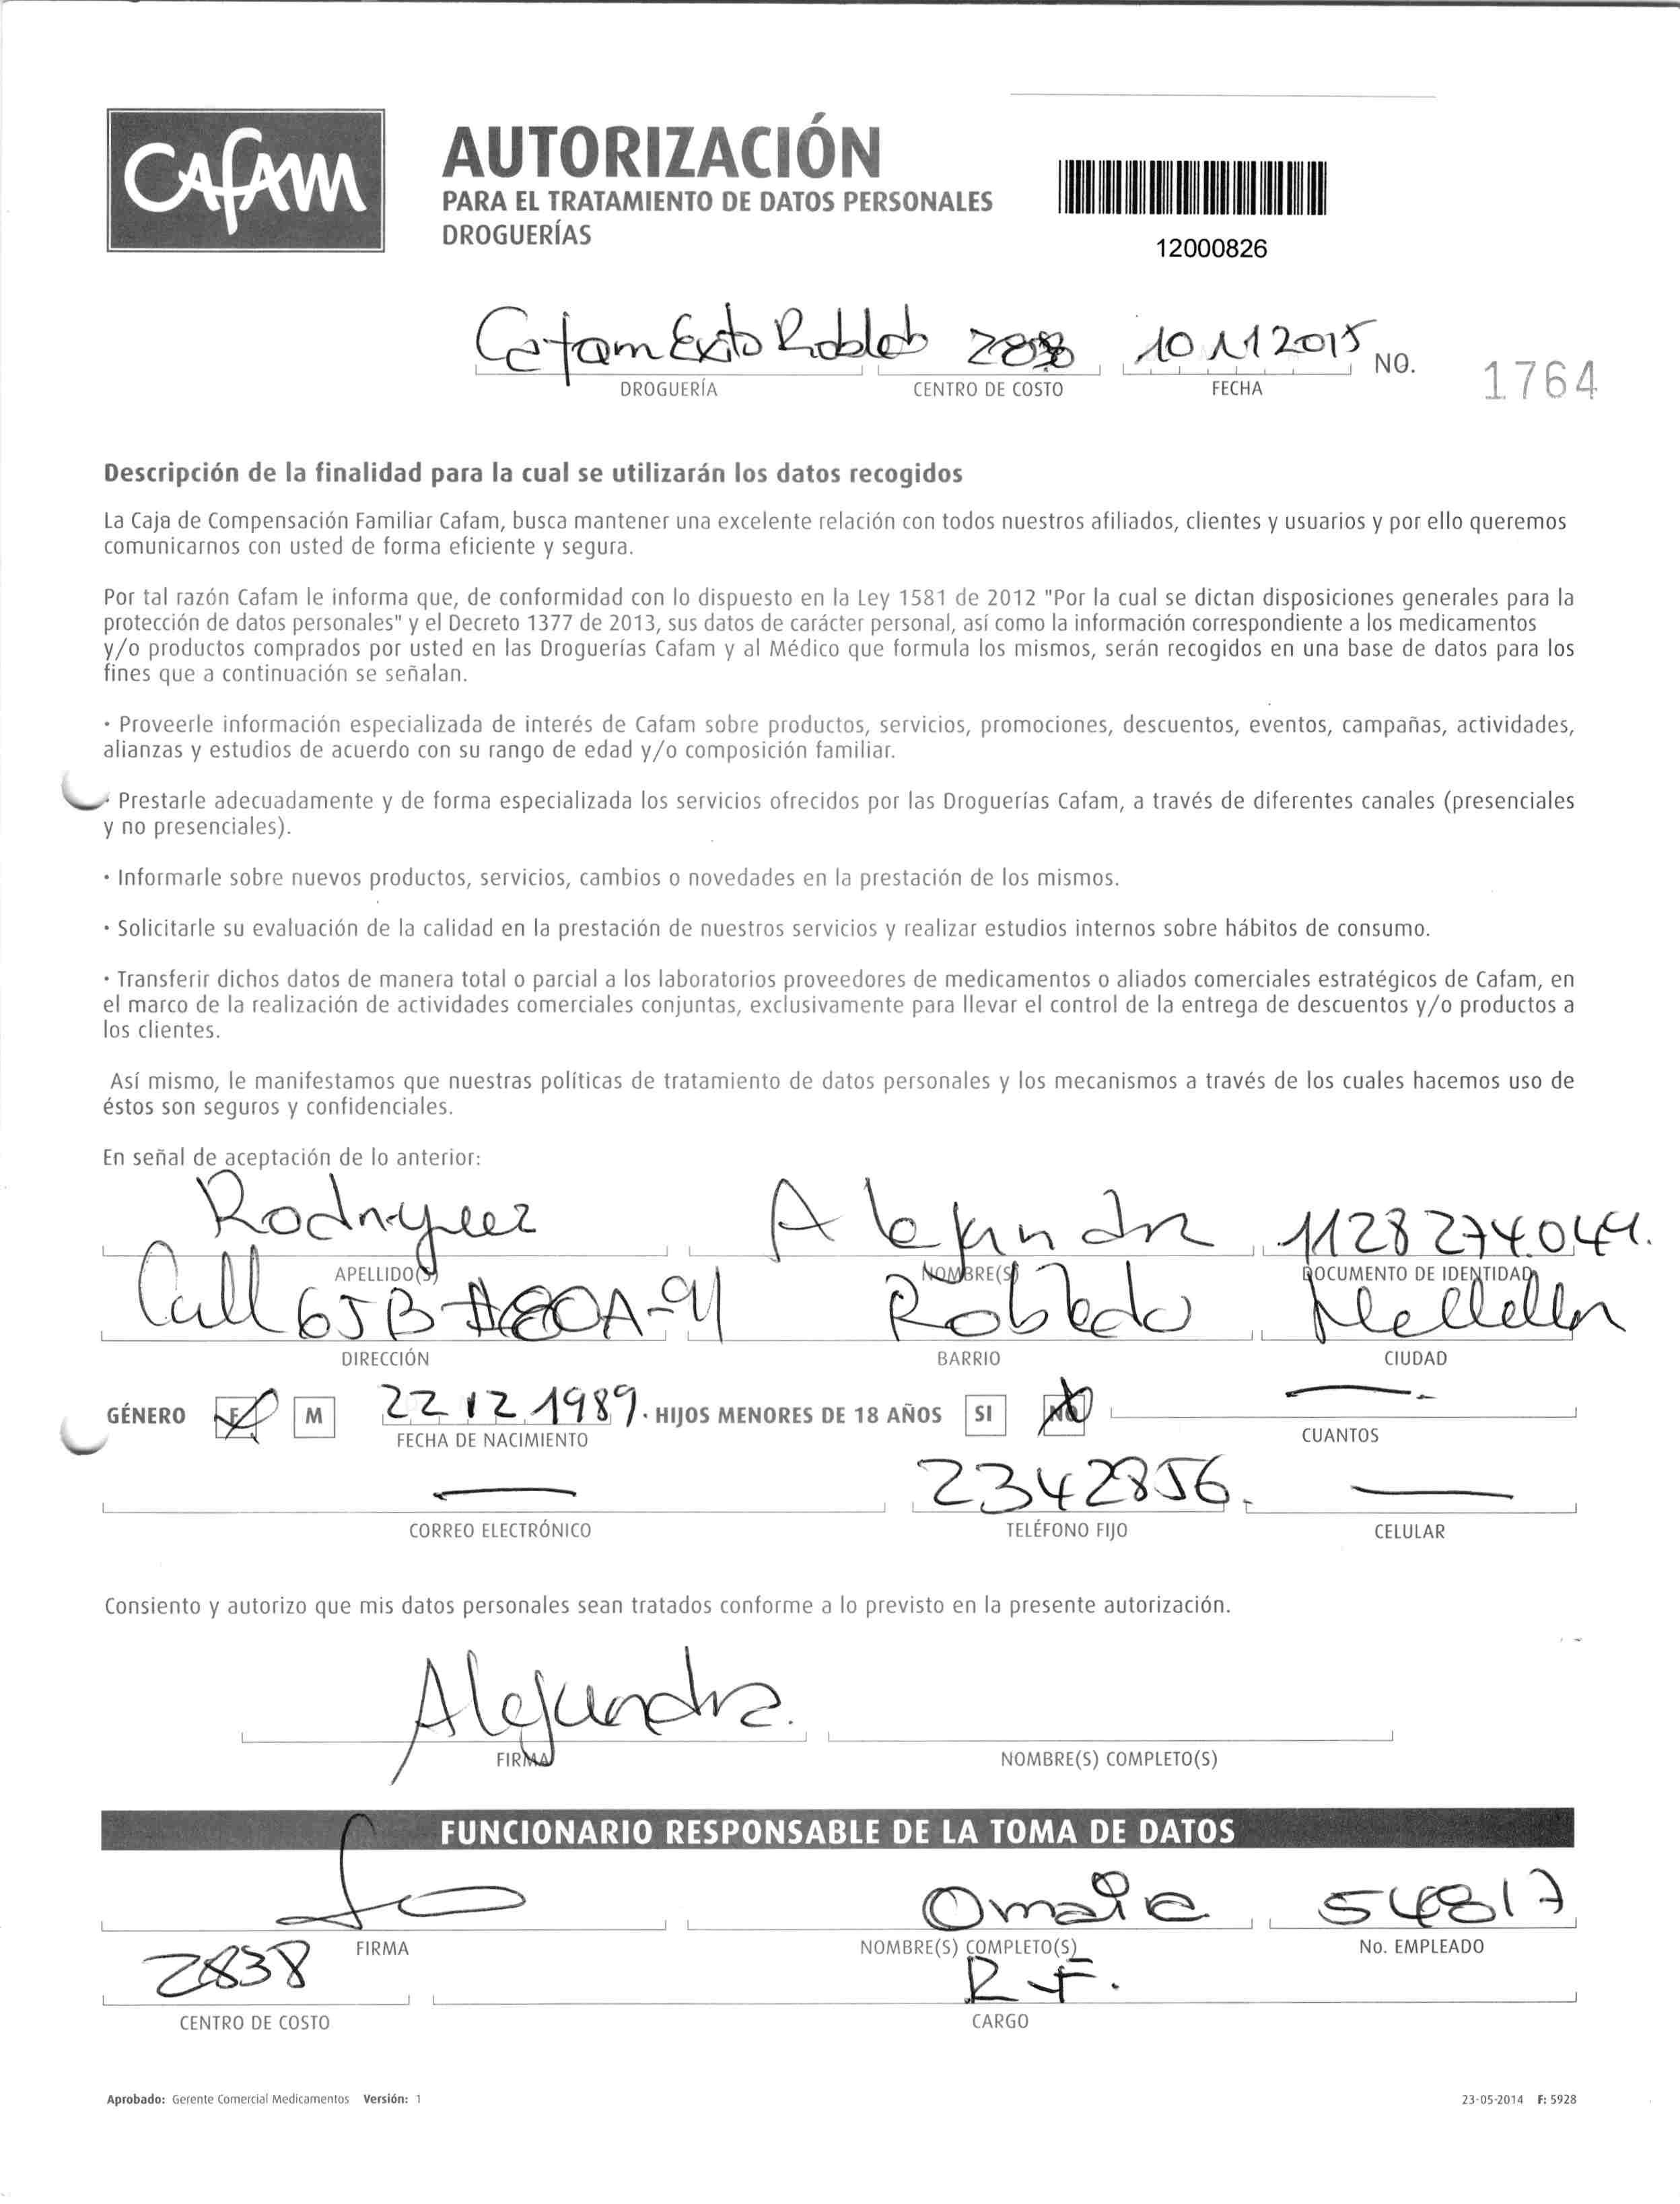 CAFAM
AUTORIZACIÓN
PARA EL TRATAMIENTO DE DATOS PERSONALES
DROGUERÍAS
12000826
Cafam Exito Robledo 10 11 2015 NO. 1764
DROGUERÍA CENTRO DE COSTO FECHA
Descripción de la finalidad para la cual se utilizarán los datos recogidos
La Caja de Compensación Familiar Cafam, busca mantener una excelente relación con todos nuestros afiliados, clientes y usuarios y por ello queremos
comunicarnos con usted de forma eficiente y segura.
Por tal razón Cafam le informa que, de conformidad con lo dispuesto en la Ley 1581 de 2012 "Por la cual se dictan disposiciones generales para la
protección de datos personales" y el Decreto 1377 de 2013, sus datos de carácter personal, así como la información correspondiente a los medicamentos
y/o productos comprados por usted en las Droguerías Cafam y al Médico que formula los mismos, serán recogidos en una base de datos para los
fines que a continuación se señalan.
· Proveerle información especializada de interés de Cafam sobre productos, servicios, promociones, descuentos, eventos, campañas, actividades,
alianzas y estudios de acuerdo con su rango de edad y/o composición familiar.
· Prestarle adecuadamente y de forma especializada los servicios ofrecidos por las Droguerías Cafam, a través de diferentes canales (presenciales
y no presenciales).
· Informarle sobre nuevos productos, servicios, cambios o novedades en la prestación de los mismos.
· Solicitarle su evaluación de la calidad en la prestación de nuestros servicios y realizar estudios internos sobre hábitos de consumo.
· Transferir dichos datos de manera total o parcial a los laboratorios proveedores de medicamentos o aliados comerciales estratégicos de Cafam, en
el marco de la realización de actividades comerciales conjuntas, exclusivamente para llevar el control de la entrega de descuentos y/o productos a
los clientes.
Así mismo, le manifestamos que nuestras políticas de tratamiento de datos personales y los mecanismos a través de los cuales hacemos uso de
éstos son seguros y confidenciales.
En señal de aceptación de lo anterior:
Rodriguez Alejandra 1128274044.
APELLIDO(S) NOMBRE(S) DOCUMENTO DE IDENTIDAD
Call 65B #80A-91 Robledo Medellin
DIRECCIÓN BARRIO CIUDAD
GÉNERO F M 22 12 1989. HIJOS MENORES DE 18 AÑOS SI NO —
FECHA DE NACIMIENTO CUANTOS
— 2342856. —
CORREO ELECTRÓNICO TELÉFONO FIJO CELULAR
Consiento y autorizo que mis datos personales sean tratados conforme a lo previsto en la presente autorización.
Alejandra.
FIRMA NOMBRE(S) COMPLETO(S)
FUNCIONARIO RESPONSABLE DE LA TOMA DE DATOS
54817
FIRMA NOMBRE(S) COMPLETO(S) No. EMPLEADO
2838 R.F.
CENTRO DE COSTO CARGO
Aprobado: Gerente Comercial Medicamentos Versión: 1 23-05-2014 F: 5928